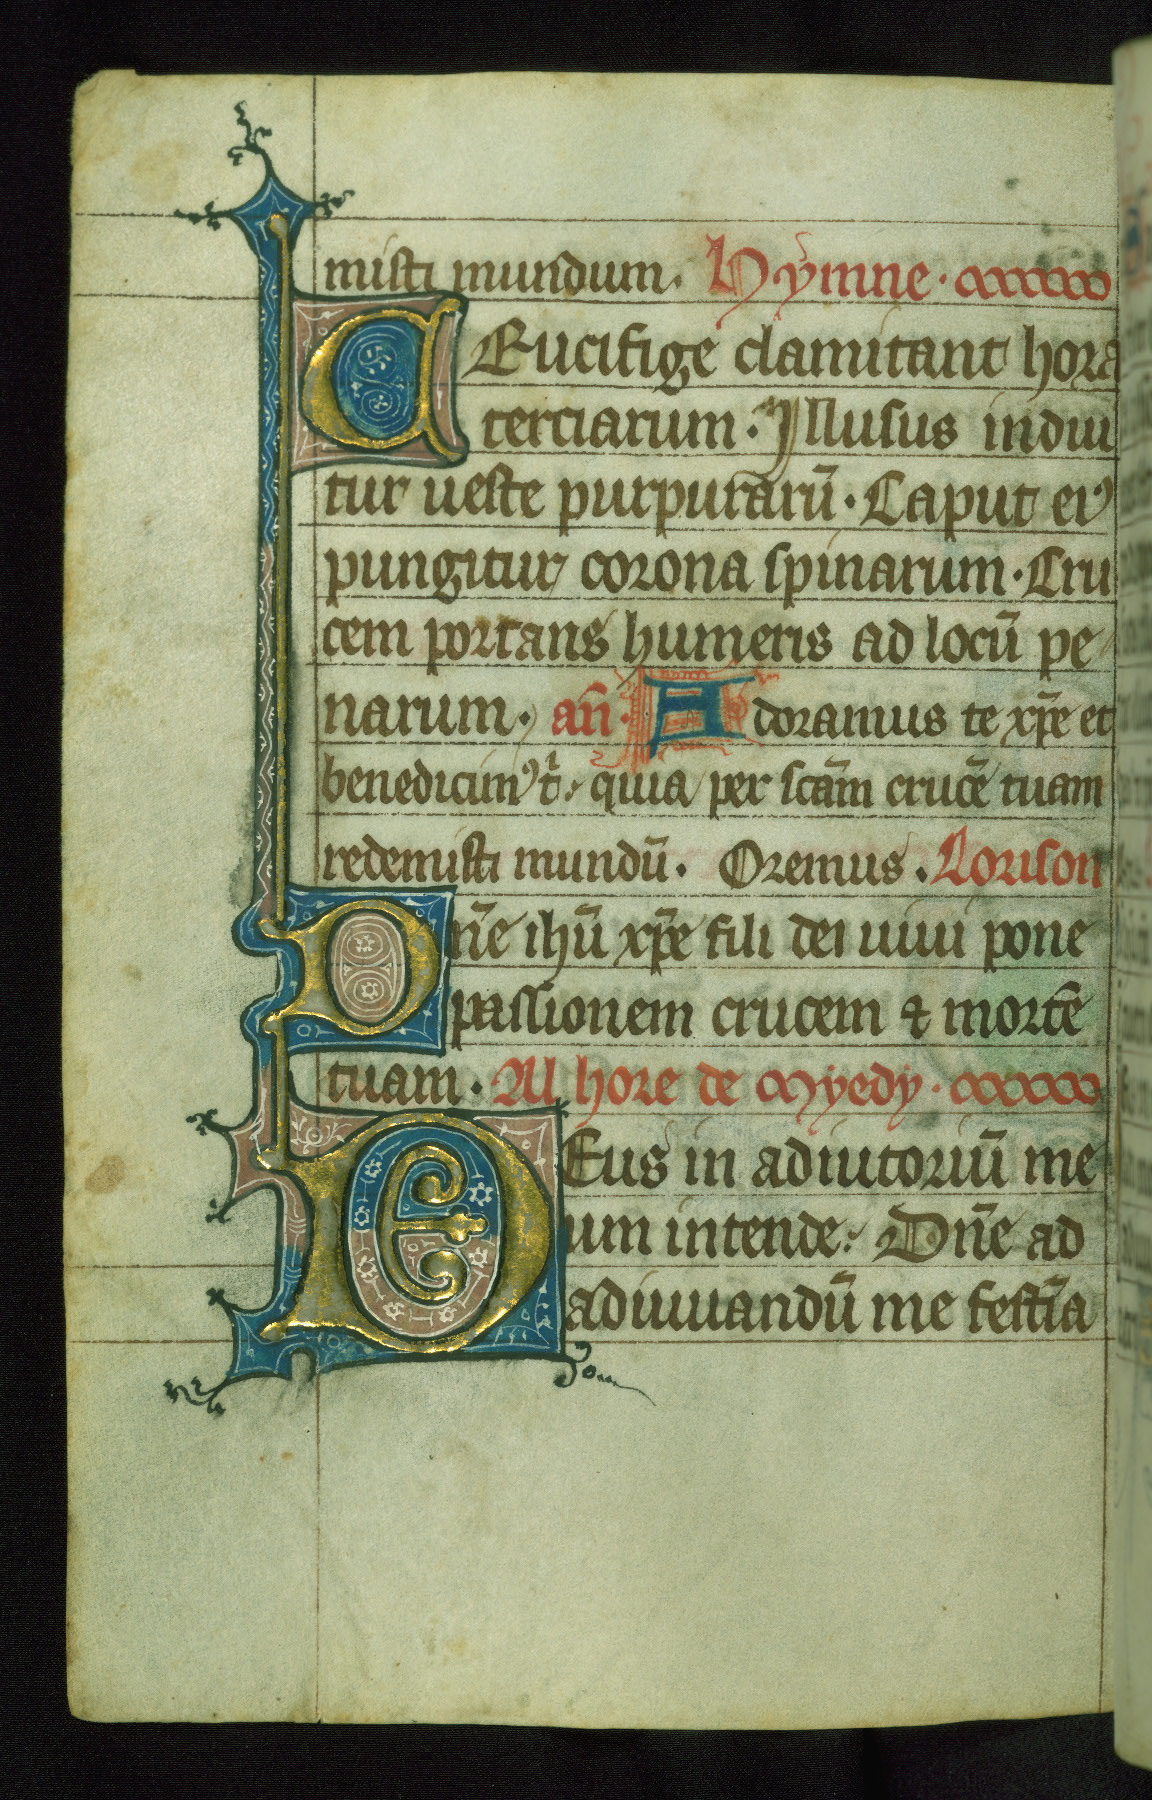 misti mundum. Hymne.
CRucifige clamitant hora
terciarum. Yllusus indui
tur ueste purpurarū. Caput ei9
pungitur corona spinarum. Cru
cem portans humeris ad locū pe
narum. añ. Adoramus te xp̄e et
benedicim9 t̄. quia per scām crucē tuam
redemisti mundū. Oremus. Lorison
Dn̄e ihū xp̄e fili dei uiui pone
passionem crucem & mortē
tuam. Al hore de myedy.
DEus in adiutoriū me
um intende. Dn̄e ad
adiuuandū me festīa